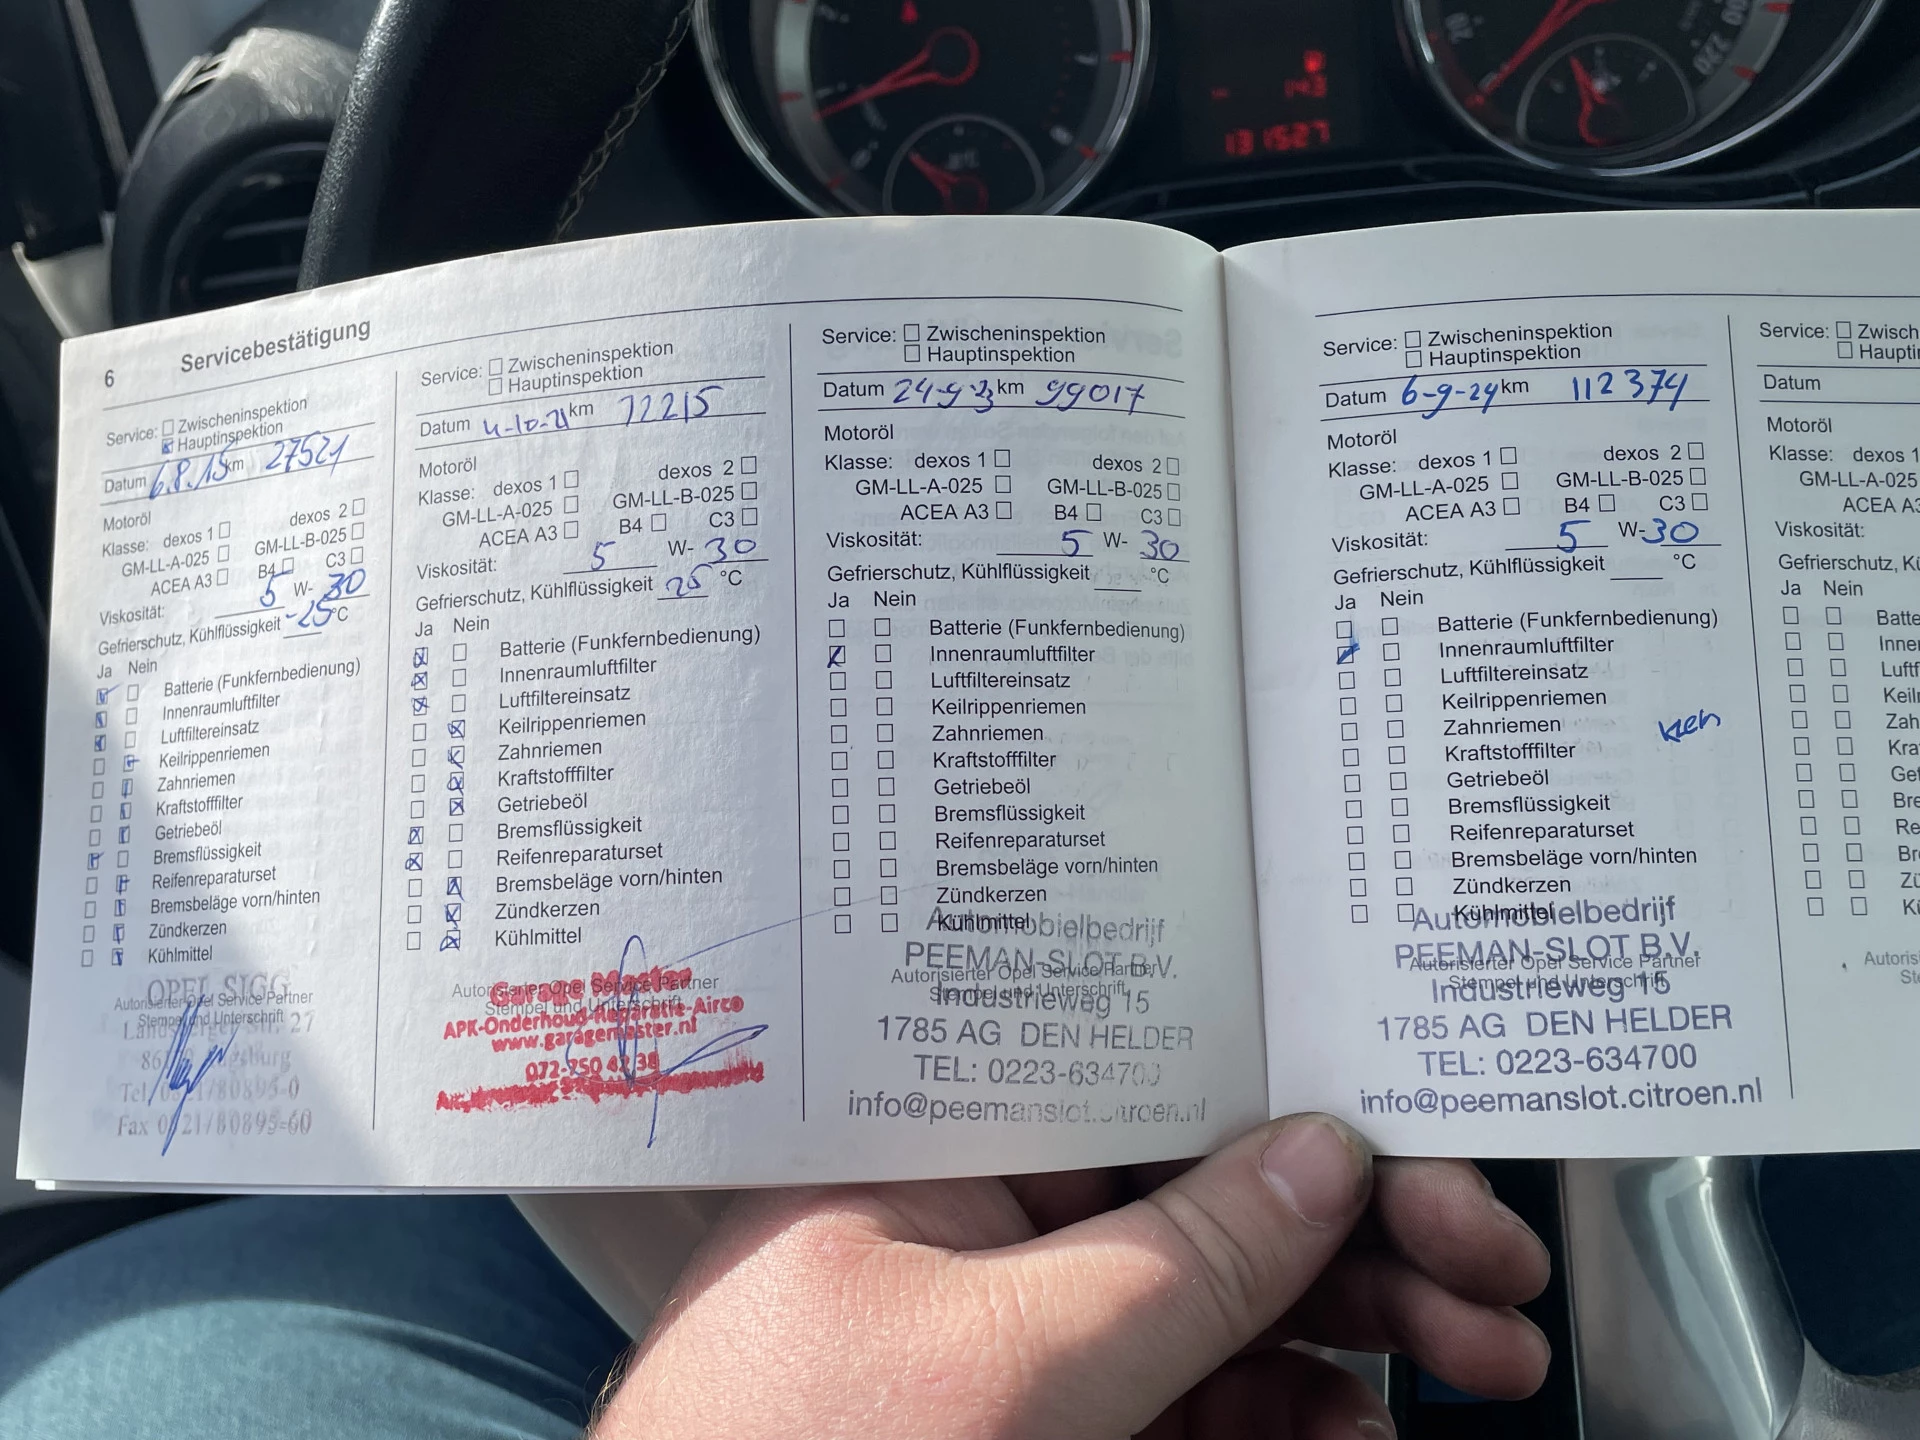 131527
6 Servicebestätigung
Service: Zwischeninspektion
Hauptinspektion
Datum 6.8.15 km 27521
Motoröl
Klasse: dexos 1 dexos 2
GM-LL-A-025 GM-LL-B-025
ACEA A3 B4 C3
Viskosität: 5 W- 30
Gefrierschutz, Kühlflüssigkeit -25 °C
Ja Nein
Batterie (Funkfernbedienung)
Innenraumluftfilter
Luftfiltereinsatz
Keilrippenriemen
Zahnriemen
Kraftstofffilter
Getriebeöl
Bremsflüssigkeit
Reifenreparaturset
Bremsbeläge vorn/hinten
Zündkerzen
Kühlmittel
OPEL SIGG
Autorisierter Opel Service Partner
Stempel und Unterschrift
27
Fax 0821/80895-60
Service: Zwischeninspektion
Hauptinspektion
Datum 4-10-21 km 72215
Motoröl
Klasse: dexos 1 dexos 2
GM-LL-A-025 GM-LL-B-025
ACEA A3 B4 C3
Viskosität: 5 W- 30
Gefrierschutz, Kühlflüssigkeit 25 °C
Ja Nein
Batterie (Funkfernbedienung)
Innenraumluftfilter
Luftfiltereinsatz
Keilrippenriemen
Zahnriemen
Kraftstofffilter
Getriebeöl
Bremsflüssigkeit
Reifenreparaturset
Bremsbeläge vorn/hinten
Zündkerzen
Kühlmittel
Garage Master
Autorisierter Opel Service Partner
Stempel und Unterschrift
APK-Onderhoud-Reparatie-Airco
www.garagemaster.nl
072-750 42 38
Service: Zwischeninspektion
Hauptinspektion
Datum 24-9-23 km 99017
Motoröl
Klasse: dexos 1 dexos 2
GM-LL-A-025 GM-LL-B-025
ACEA A3 B4 C3
Viskosität: 5 W- 30
Gefrierschutz, Kühlflüssigkeit °C
Ja Nein
Batterie (Funkfernbedienung)
Innenraumluftfilter
Luftfiltereinsatz
Keilrippenriemen
Zahnriemen
Kraftstofffilter
Getriebeöl
Bremsflüssigkeit
Reifenreparaturset
Bremsbeläge vorn/hinten
Zündkerzen
Kühlmittel
Automobielbedrijf
PEEMAN-SLOT B.V.
Autorisierter Opel Service Partner
Stempel und Unterschrift
Industrieweg 15
1785 AG DEN HELDER
TEL: 0223-634700
info@peemanslot.citroen.nl
Service: Zwischeninspektion
Hauptinspektion
Datum 6-9-24 km 112374
Motoröl
Klasse: dexos 1 dexos 2
GM-LL-A-025 GM-LL-B-025
ACEA A3 B4 C3
Viskosität: 5 W- 30
Gefrierschutz, Kühlflüssigkeit °C
Ja Nein
Batterie (Funkfernbedienung)
Innenraumluftfilter
Luftfiltereinsatz
Keilrippenriemen
Zahnriemen
Kraftstofffilter
Getriebeöl
Bremsflüssigkeit
Reifenreparaturset
Bremsbeläge vorn/hinten
Zündkerzen
Kühlmittel
Automobielbedrijf
PEEMAN-SLOT B.V.
Autorisierter Opel Service Partner
Stempel und Unterschrift
Industrieweg 15
1785 AG DEN HELDER
TEL: 0223-634700
info@peemanslot.citroen.nl
Service: Zwisch
Haupti
Datum
Motoröl
Klasse: dexos 1
GM-LL-A-025
ACEA A3
Viskosität:
Gefrierschutz, Kü
Ja Nein
Batte
Inne
Luftf
Keilr
Zah
Kra
Get
Bre
Re
Br
Zü
Kü
Autoris